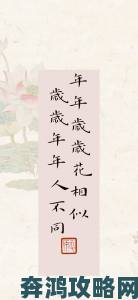 年年歲歲花相似
歲歲年年人不同
奔鸿攻略网